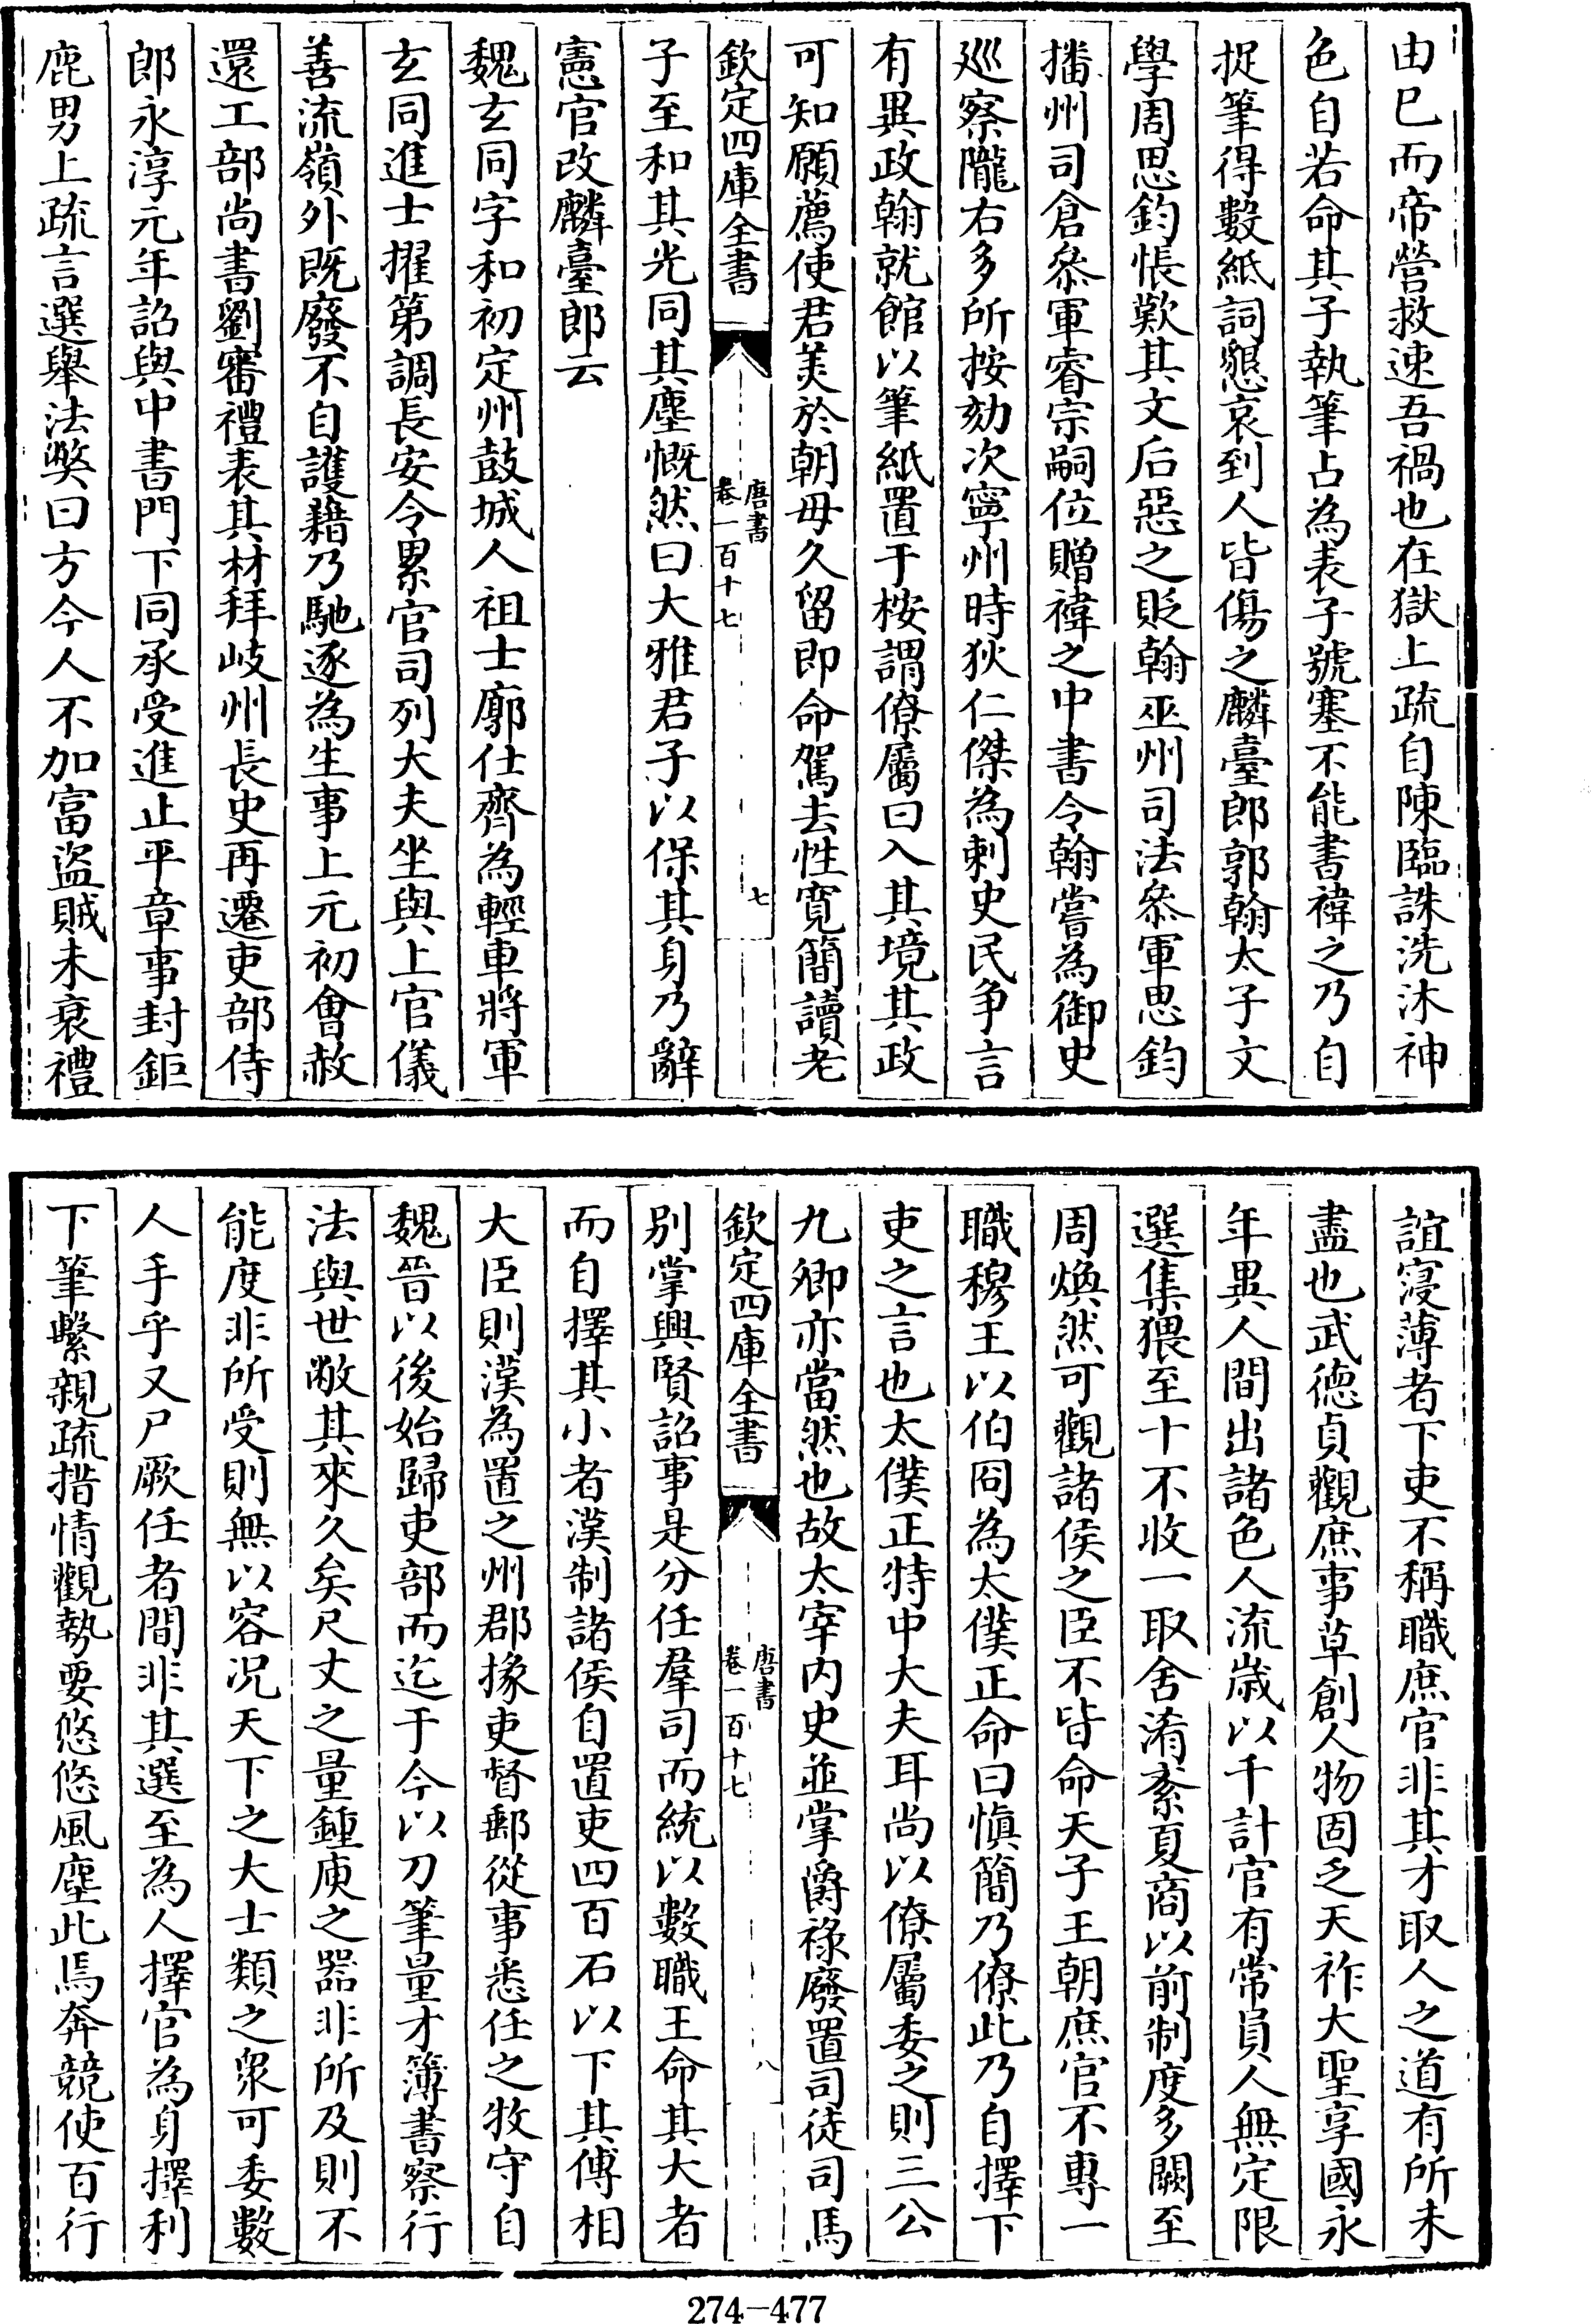 由已而帝營救速吾禍也在獄上疏自陳臨誅洗沐神
色自若命其子執筆占為表子號塞不能書禕之乃自
捉筆得數紙詞懇哀到人皆傷之麟臺郎郭翰太子文
學周思鈞悵歎其文后惡之貶翰巫州司法叅軍思鈞
播州司倉叅軍睿宗嗣位贈禕之中書令翰嘗為御史
廵察隴右多所按劾次寧州時狄仁傑為刺史民争言
有異政翰就館以筆紙置于桉謂僚屬曰入其境其政
可知願薦使君美於朝毋久留即命駕去性寛簡讀老
欽定四庫全書
唐書
卷一百十七
七
子至和其光同其塵慨然曰大雅君子以保其身乃辭
憲官改麟臺郎云
魏玄同字和初定州鼓城人祖士廓仕齊為輕車將軍
玄同進士擢第調長安令累官司列大夫坐與上官儀
善流嶺外既廢不自護藉乃馳逐為生事上元初會赦
還工部尚書劉審禮表其材拜岐州長史再遷吏部侍
郎永淳元年詔與中書門下同承受進止平章事封鉅
鹿男上疏言選舉法弊曰方今人不加富盜賊未衰禮
誼寖薄者下吏不稱職庶官非其才取人之道有所未
盡也武德貞觀庶事草創人物固乏天祚大聖享國永
年異人間出諸色人流歳以千計官有常員人無定限
選集猥至十不收一取舍淆紊夏商以前制度多闕至
周煥然可觀諸侯之臣不皆命天子王朝庶官不專一
職穆王以伯冏為太僕正命曰慎簡乃僚此乃自擇下
吏之言也太僕正特中大夫耳尚以僚屬委之則三公
九卿亦當然也故太宰内史並掌爵祿廢置司徒司馬
欽定四庫全書
唐書
卷一百十七
八
别掌興賢詔事是分任羣司而統以數職王命其大者
而自擇其小者漢制諸侯自置吏四百石以下其傅相
大臣則漢為置之州郡掾吏督郵從事悉任之牧守自
魏晉以後始歸吏部而迄于今以刀筆量才簿書察行
法與世敝其來久矣尺丈之量鍾庾之器非所及則不
能度非所受則無以容况天下之大士類之衆可委數
人手乎又尸厥任者間非其選至為人擇官為身擇利
下筆繫親疏措情觀勢要悠悠風塵此焉奔競使百行
274-477